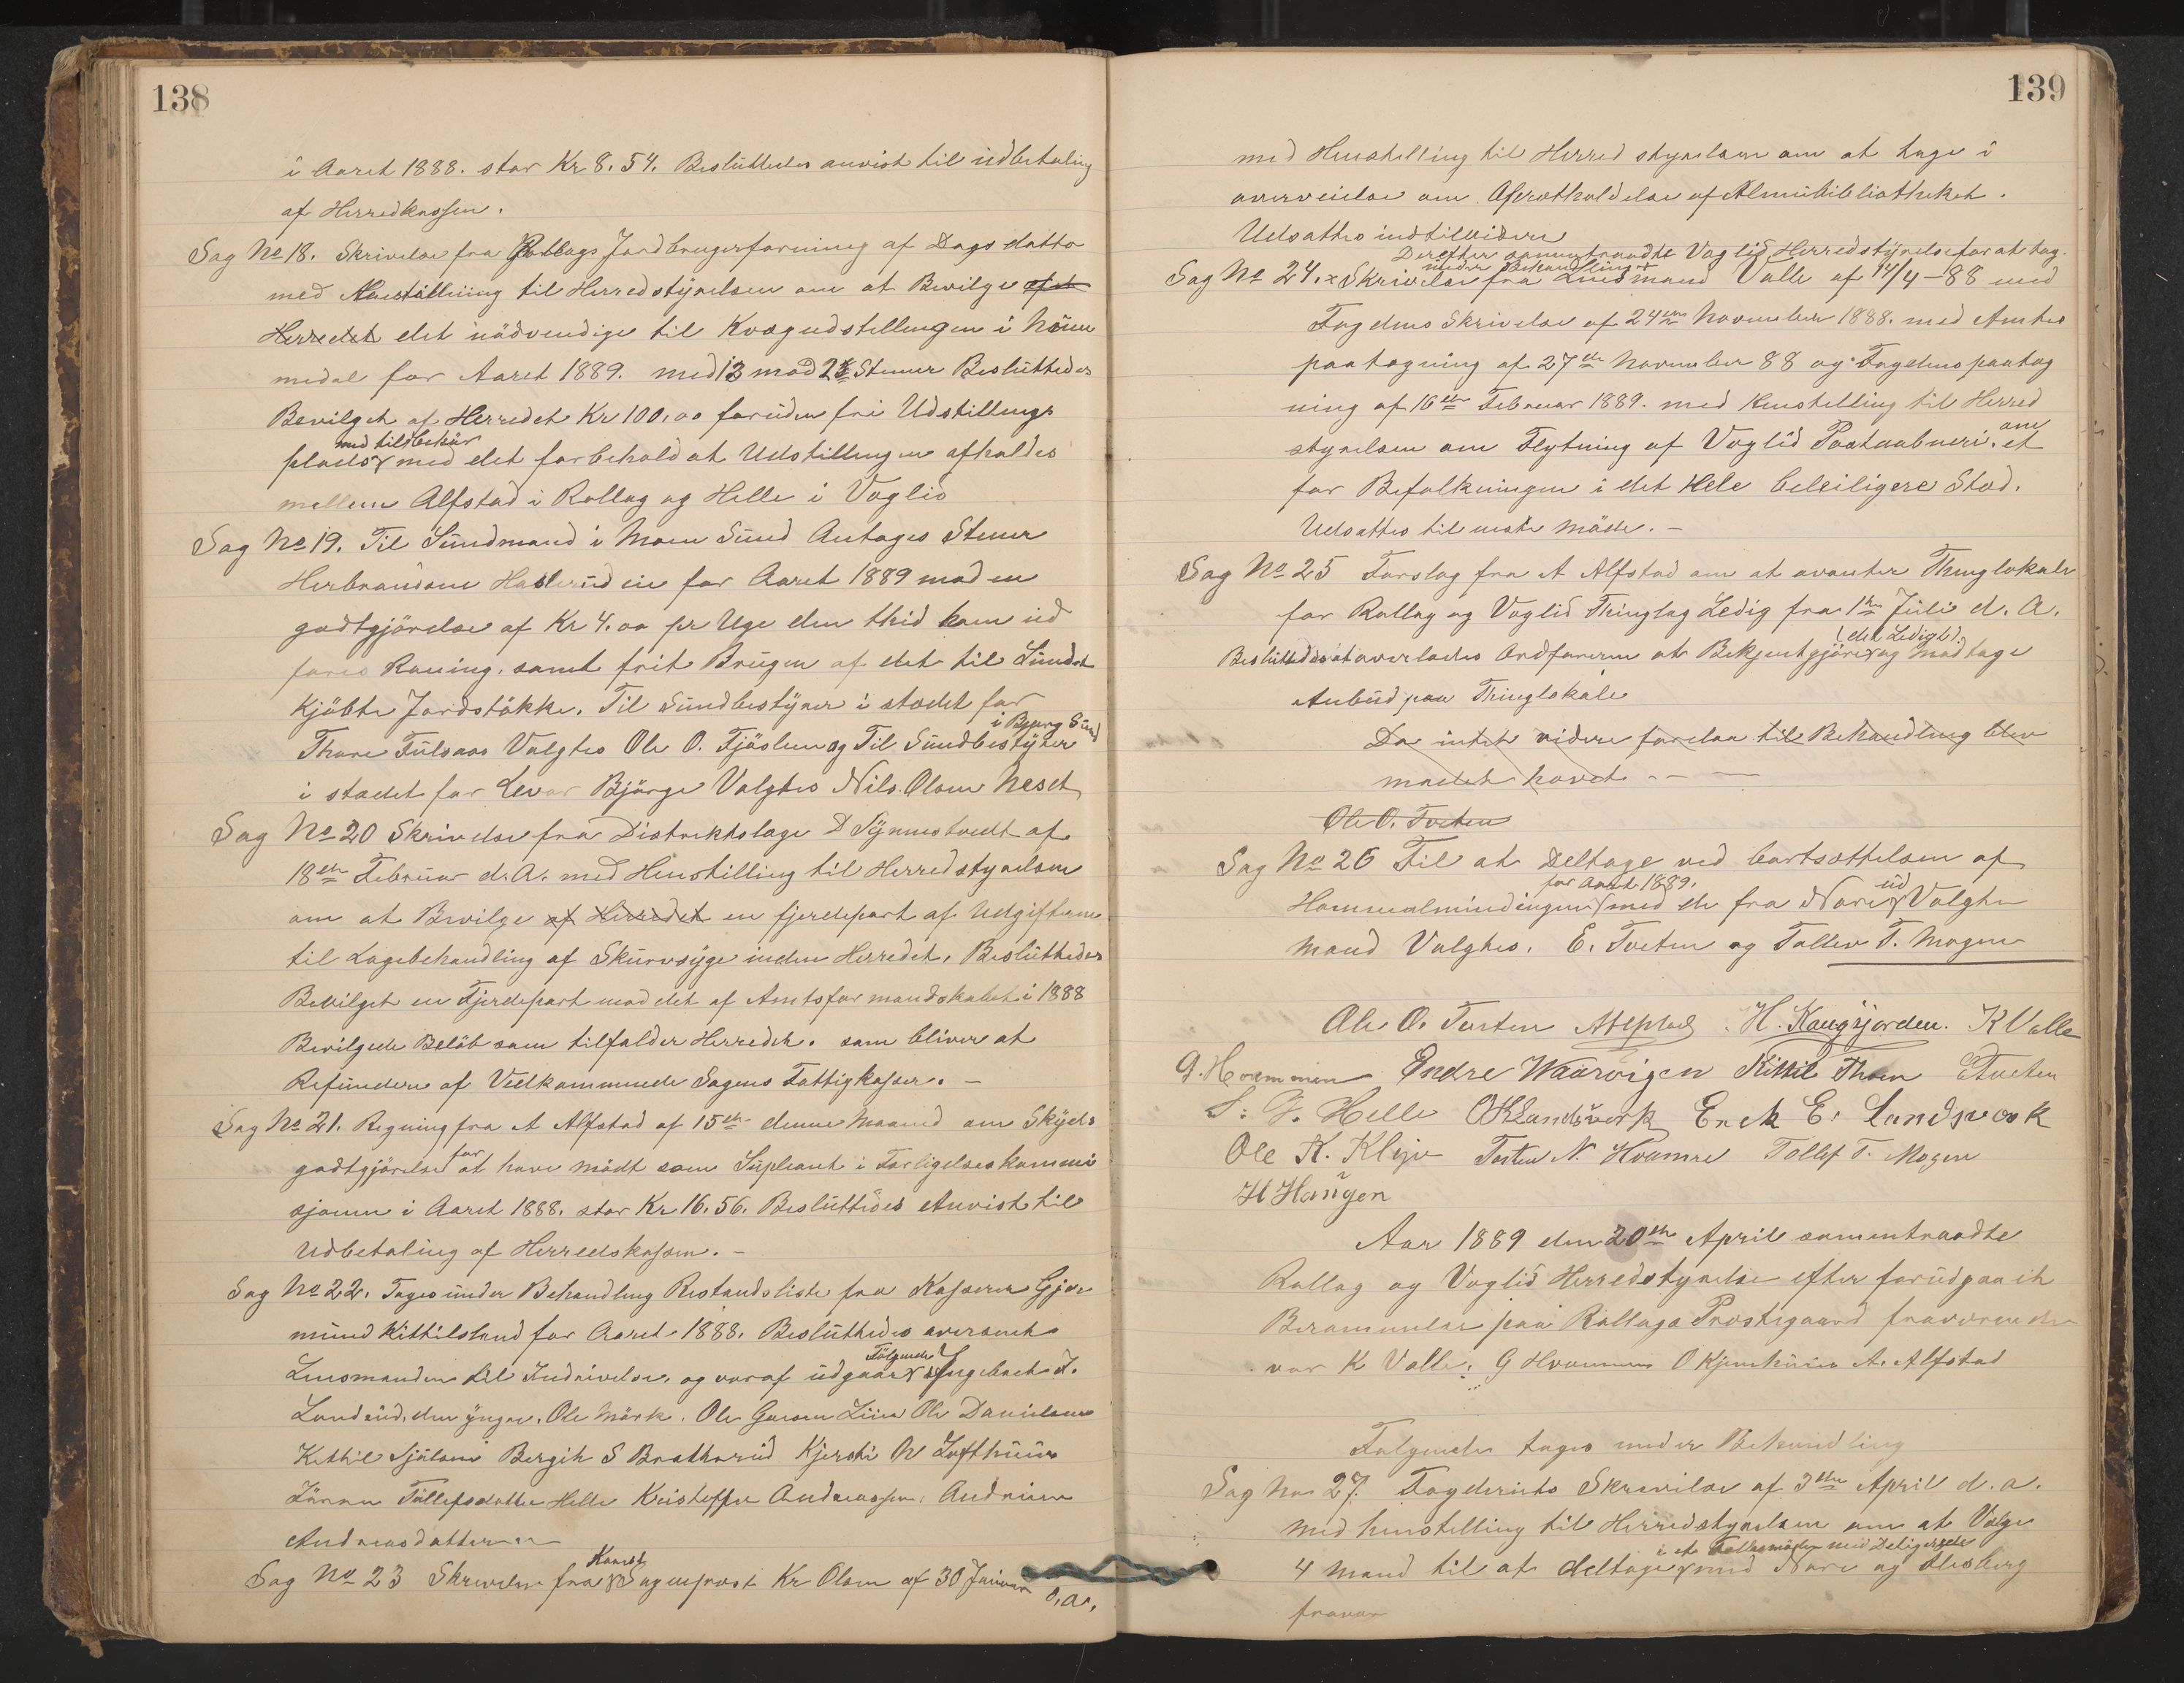 138
i Aaret 1888. stor Kr 8.54. Besluttedes anvist til udbetaling
af Herredkassen.
Sag No 18. Skrivelse fra Rollags Jordbrugerforening af Dags datto
med Henstilling til Herredstyrelsen om at Bevilge af et
Herredet det nödvendige til Kvægudstellingen i Nume
medal for Aaret 1889. med 13 mod 2 Stemer Besluttedes
Bevilget af Herredet Kr 100,00 foruden fri Udstillings
med tilbehör
plads x med det forbehold at Udstillingen afholdes
mellem Alfstad i Rollag og Helle i Væglid
Sag No 19. Til Sundmand i Moen Sund Antages Stener
Herbrandsen Haslerudeie for Aaret 1889 mod en
godtgjörelse af Kr 4.00 pr Uge den thid kam ud
fores Roning, samt frit Brugen af det til Sundet
Kjöbte Jordstökke. Til Sundbestyrer i stedet for
i Bjørg Sund
Thore Fulsaas Valgtes Ole O. Fjöslien og Til Sundbestyrer
i stedet for Levor Bjørge Valgtes Nils Olsen Neset
Sag No 20 Skrivelse fra Distriktslæge D Tynnestvedt af
18de Februar d.A. med Henstilling til Herredstyrelsen
om at Bevilge af Herredet en fjerdepart af Udgifterne
til Lægebehandling af Skurvsyge inden Herredet. Besluttedes
Bevilget en Fjerdepart mod det af Amtsformandskabet i 1888
Bevilgede Belöb som tilfalder Herredet. som bliver at
Refundere af Vedkommende Sogens Fattigkasser. -
Sag No 21. Regning fra A Alfstad af 15de denne Maaned om Skyds
for
godtgjörelse at have mödt som Supleant i Forligelseskommi
sjonen i Aaret 1888. stor Kr 16.56. Besluttedes Anvist til
Udbetaling af Herredskassen. -
Sag No 22. Tages under Behandling Restandsliste fra Kasserer Gjer
mund Kittilsland for Aaret 1888. Besluttedes oversendt
Følgende
Lensmanden til Inddrivelse. og voraf udgaar x Ingebret J.
Landrud. den yngre. Ole Mörk. Ole Gursen Liien Ole Danielsen
Kettil Sjulsen Bergit S Bratterud Kjersti N Lofthuus
Jöran Tollefsdatter Helle Kristoffer Andreassen. Andrine
Andreasdatter
Konst
Sag No 23 Skrivelse fra x Sogneprest Kr Olsen af 30 Januar d.a.
139
med Henstilling til Herred styrelsen om at tage i
overveielse om Opretholdelse af Almubibliotheket.
Udsattes indtil videre
Derefter sammentraadte Væglid Herredstyrelse for at tag.
under Behandling +
Sag No 24. x Skrivelse fra Lensmand Valle af 14/4-88 med
Fogdens Skrivelse af 24de November 1888. med Amtes
paategning af 27de November 88 og Fogdens paateg
ning af 16de Februar 1889. med Henstilling til Herred
om
styrelsen om Flytning af Væglid Postaabneri. et
for Befolkningen i det Hele beleiligere Sted.
Udsattes til neste Möde. -
Sag No 25 Forslag fra A Alfstad om at avanter Thinglokale
for Rollag og Væglid Thinglag Ledig fra 1ste Juli d. A.
(det Ledigt).
Besluttedes at overlades Ordföreren at Bekjentgjöre x og modtage
Anbud paa Thinglokale
Da intet videre forelaa til Behandling blev
mödet hævet
Ole O. Tveten
Sag No 26 Til at Deltage ved bortsættelsen af
for Aaret 1889. ud
Hammalmindingen x med de fra Nore x Valgte
Mænd Valgtes. E. Tveten og Tollev T. Mogen
Ole O. Tveten AAlfstad H. Haugsjorden. K Valle
G. Hvammen Endre Waarvigen Kittil Thoen ETveten
S. G. Helle OKLandsverk Erek E. Landsverk
Ole K. Kleiv Torsten N. Hvamre Tollef T. Mogen
H Haugen
Aar 1889 den 20de April sammentraadte
Rollag og Væglid Herredstyrelse efter forudgaaet
Berammelse paa Rollags Prestegaard fraværende
var K Valle. G Hvammen O Kjemhuus A. Alfstad
Følgende tages under Behandling
Sag No 27. Fogderiets Skrivelse af 3die April d. a.
med henstilling til Herredstyrelsen om at Vælge
i et Fellesmöde med Deligerede
4 Mænd til at deltage x med Nore og Flesberg
fravær